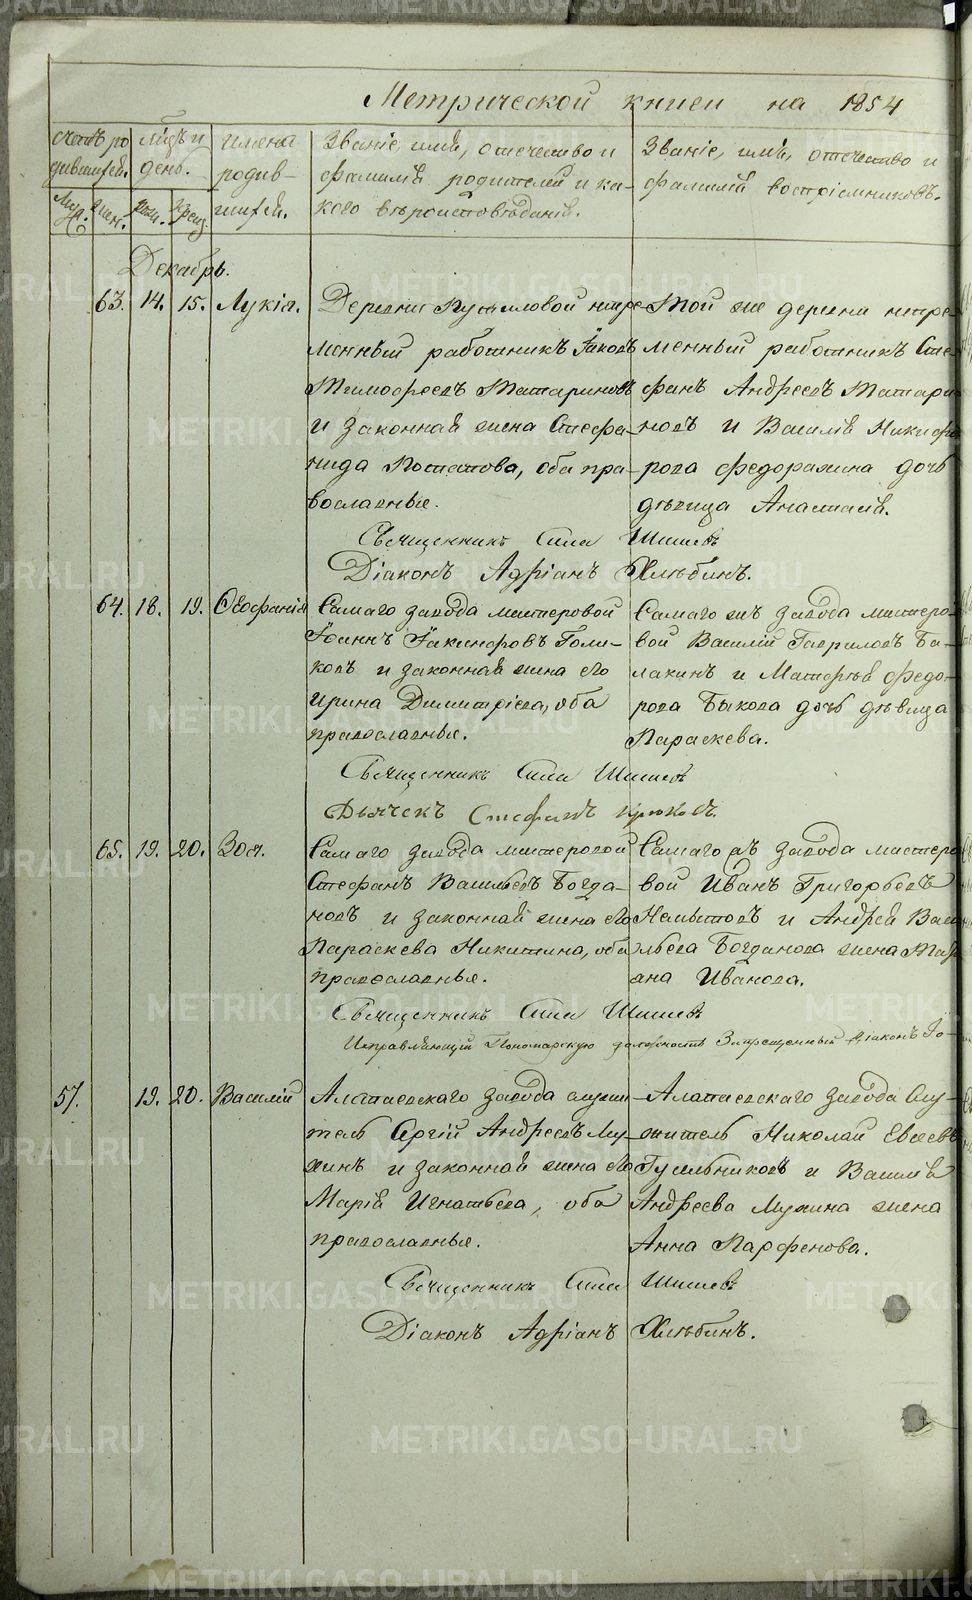 Метрической книги на 1854
счетъ ро
дившихся.
мѣсяцъ и
день.
имена
родив-
шихся.
Званіе, имя, отечество и
фамилія родителей и ка-
кого вѣроисповѣданія.
Званіе, имя, отечество и
фамилія воспріемниковъ.
Муж. жен. рожд. крещ.
Декабрь.
63. 14. 15. Лукія.
Деревни Путиловой непре-
менный работникъ Іаковъ
Тимофеевъ Татариновъ
и законная жена Стефа-
нида Потапова, оба пра-
вославные.
Той же деревни непре-
менный работникъ Сте-
фанъ Андреевъ Татари-
новъ и Василія Никифо-
рова Федорахина дочь
дѣвица Анастасія.
Священникъ Сила Шишевъ
Діаконъ Адріанъ Хлѣбинъ.
64. 18. 19. Ѳеофанія
Самаго завода мастеровой
Іоаннъ Іакинфовъ Голи-
ковъ и законная жена его
Ирина Димитріева, оба
православные.
Самаго жъ завода мастеро-
вой Василій Гавриловъ Ба-
лакинъ и Матфія Федо-
рова Быкова дочь дѣвица
Параскева.
Священникъ Сила Шишевъ
Дьячекъ Стефанъ Крюковъ.
65. 19. 20. Зоя.
Самаго завода мастеровой
Стефанъ Васильевъ Богда-
новъ и законная жена его
Параскева Никитина, оба
православные.
Самаго жъ завода мастеро
вой Иванъ Григорьевъ
и Андрея Васи
льева Богданова жена Тать
ана Иванова.
Священникъ Сила Шишевъ
Исправляющій Пономарскую должность Запрещенный діаконъ Іо-
57. 19. 20. Василій
Алапаевскаго завода служи-
тель Сергій Андреевъ Му-
хинъ и законная жена его
Марія Игнатьева, оба
православные.
Алапаевскаго завода Слу-
житель Николай Евсеевъ
Гусельниковъ и Василія
Андреева Мухина жена
Анна Парфенова.
Священникъ Сила Шишевъ
Діаконъ Адріанъ Хлѣбинъ.
METRIKI.GASO-URAL.RU